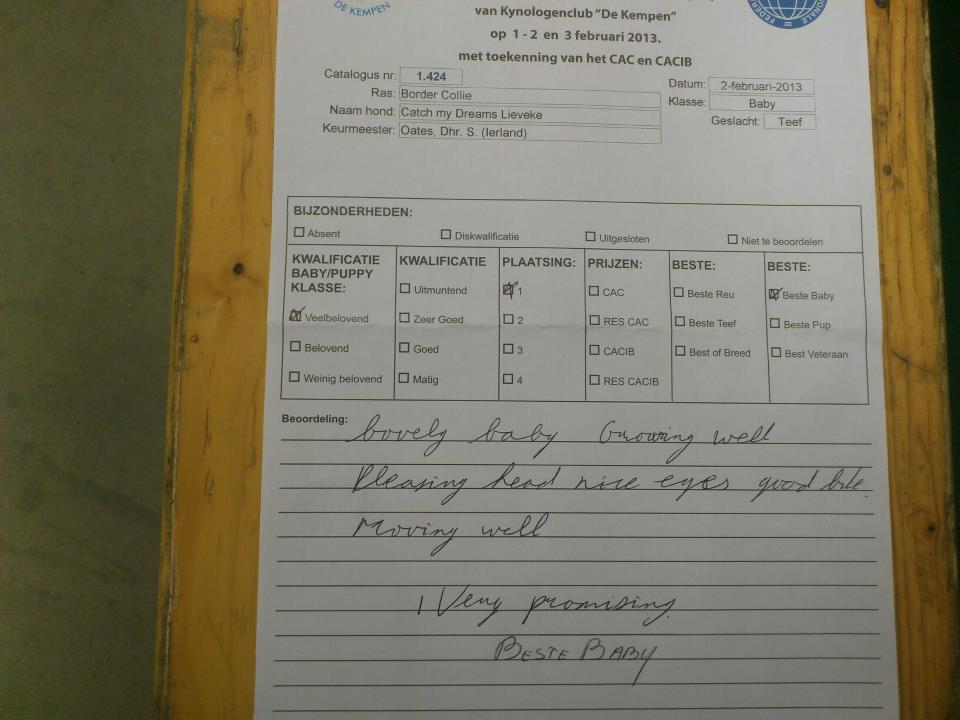 DE KEMPEN
van Kynologenclub "De Kempen"
op 1 - 2 en 3 februari 2013.
met toekenning van het CAC en CACIB
Catalogus nr: 1.424
Datum: 2-februari-2013
Ras: Border Collie
Klasse: Baby
Naam hond: Catch my Dreams Lieveke
Geslacht: Teef
Keurmeester: Oates, Dhr. S. (Ierland)
BIJZONDERHEDEN:
Absent Diskwalificatie Uitgesloten Niet te beoordelen
KWALIFICATIE BABY/PUPPY KLASSE:
Veelbelovend
Belovend
Weinig belovend
KWALIFICATIE
Uitmuntend
Zeer Goed
Goed
Matig
PLAATSING:
1
2
3
4
PRIJZEN:
CAC
RES CAC
CACIB
RES CACIB
BESTE:
Beste Reu
Beste Teef
Best of Breed
BESTE:
Beste Baby
Beste Pup
Best Veteraan
Beoordeling:
Lovely baby Growing well
Pleasing head nice eyes good bite.
Moving well
1 Very promising
BESTE BABY